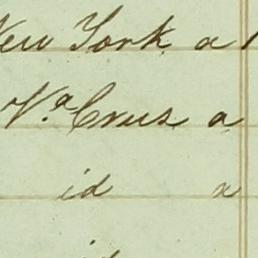 New York a
Va. Cruz a
id a
id